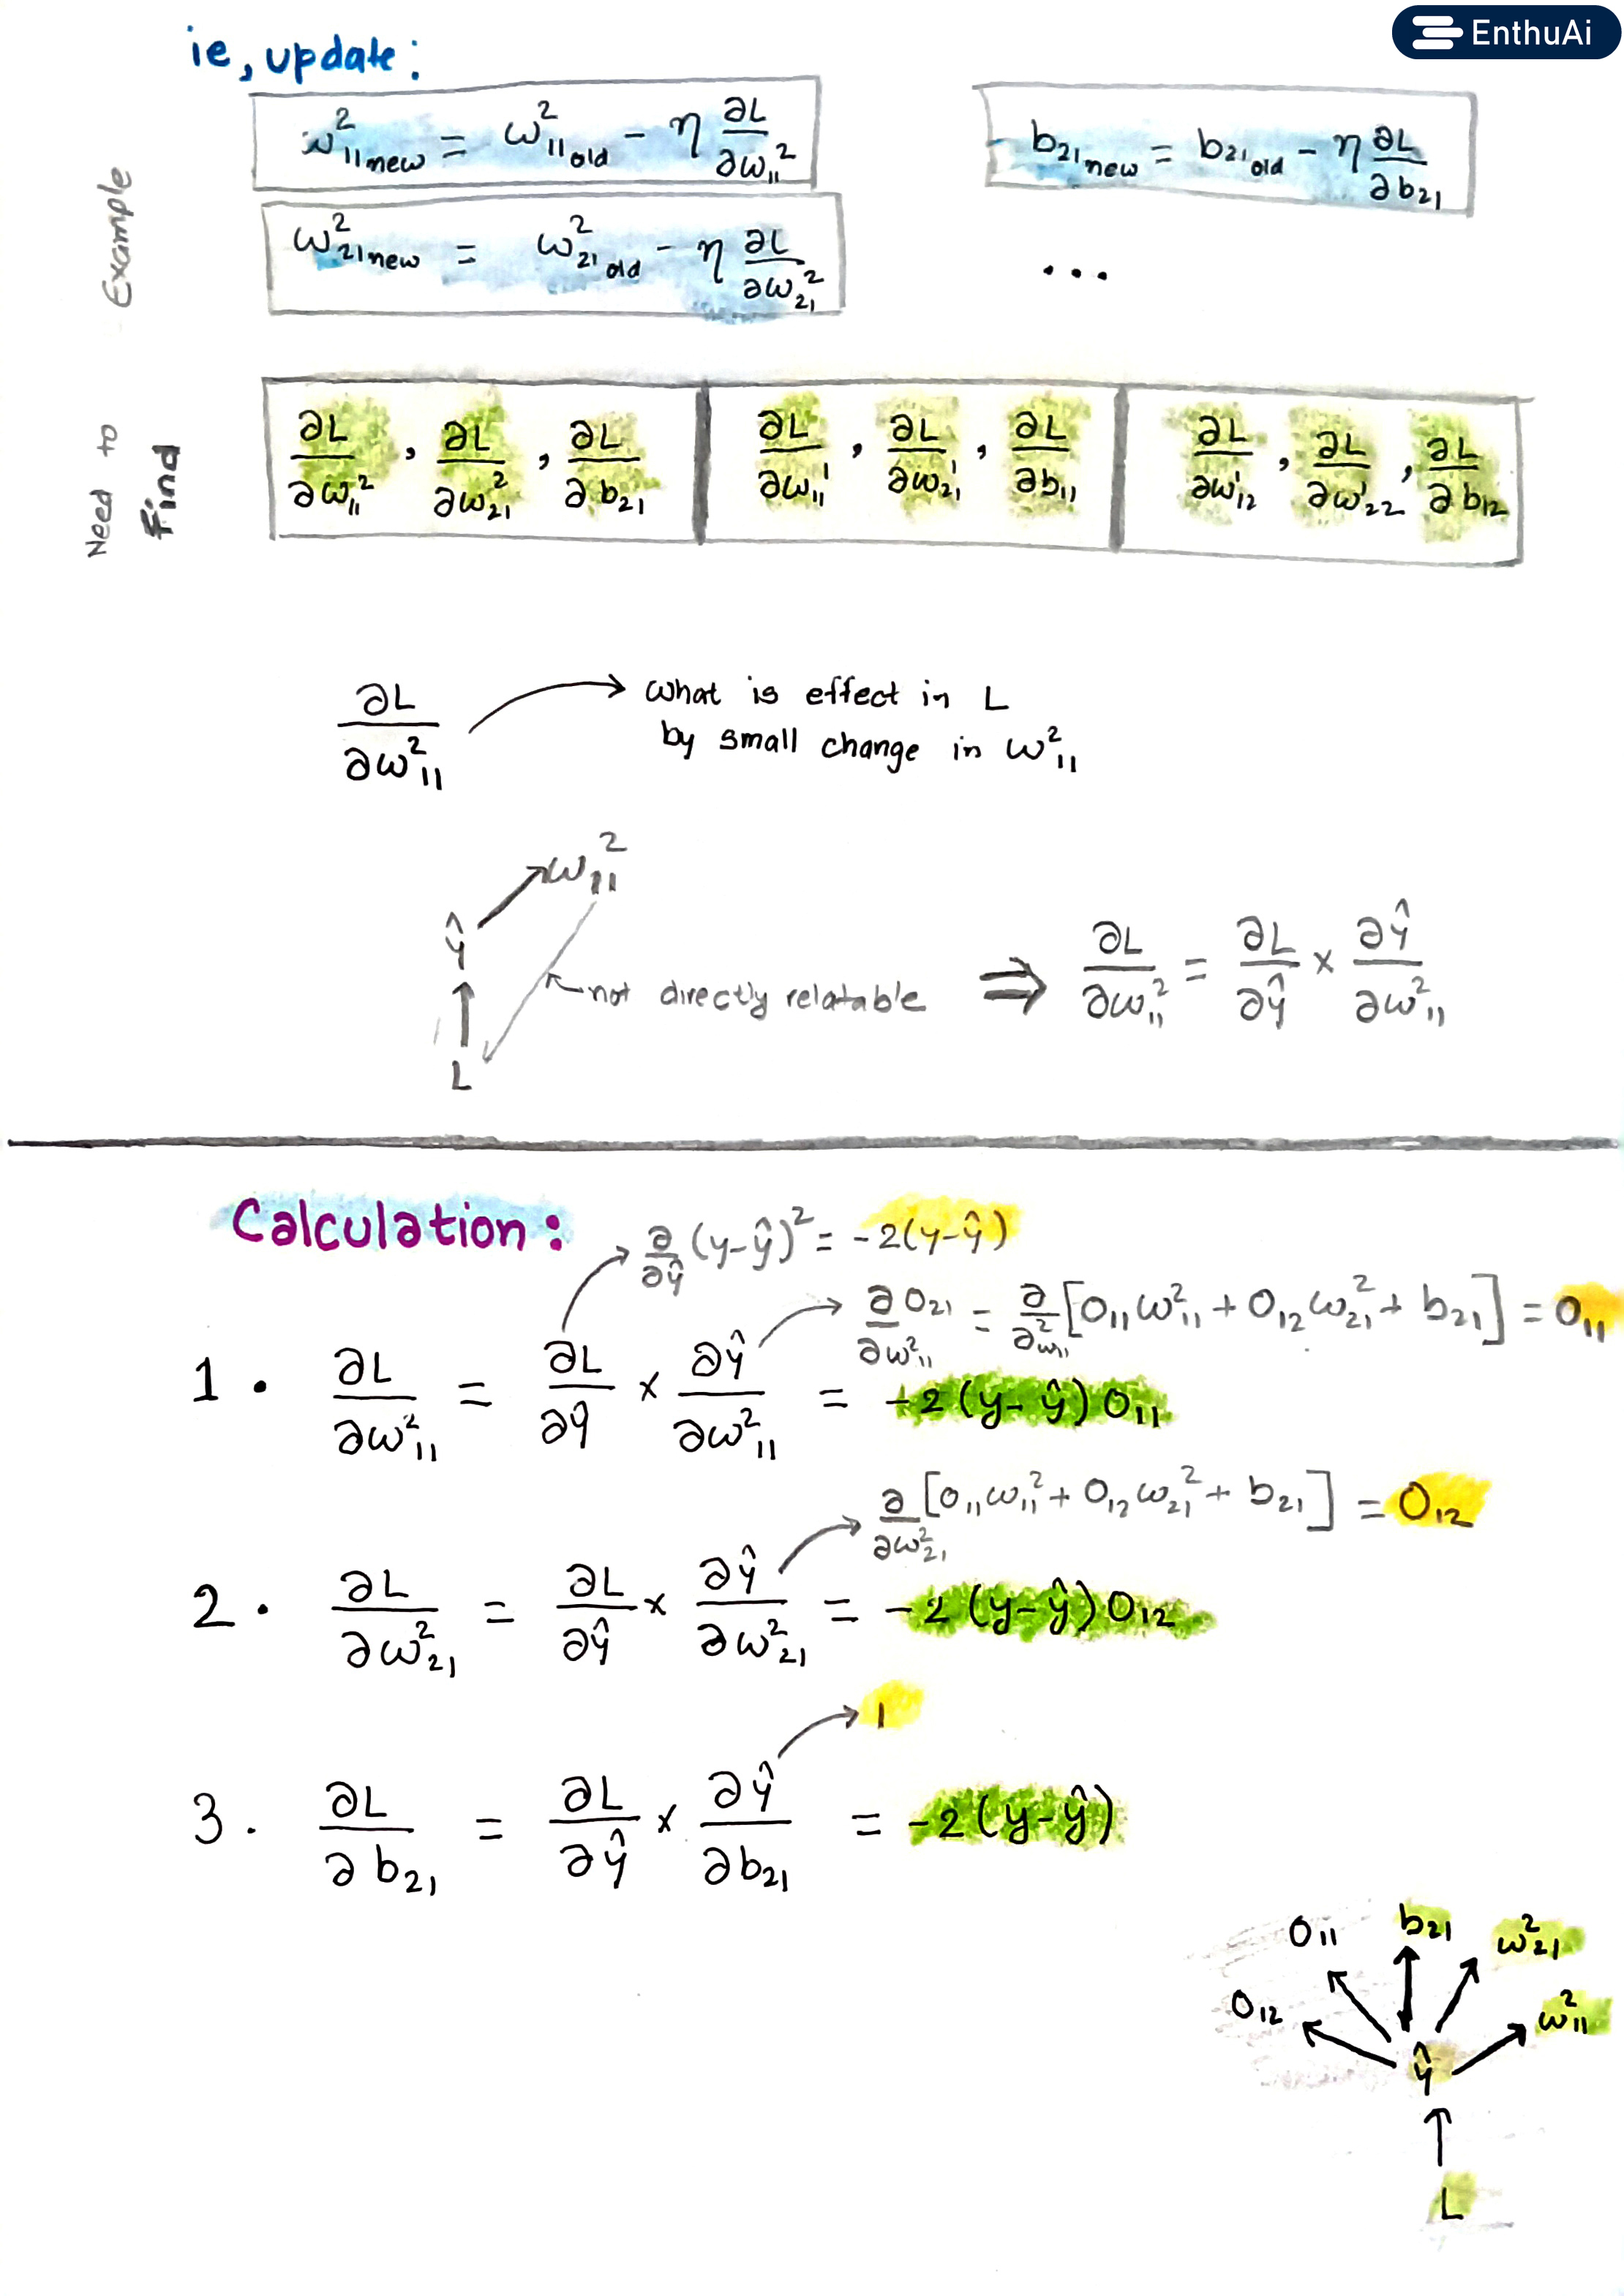 EnthuAi
ie, update:
Example
ω²₁₁ new = ω²₁₁ old - η ∂L/∂ω₁₁²
b₂₁ new = b₂₁ old - η ∂L/∂b₂₁
ω²₂₁ new = ω²₂₁ old - η ∂L/∂ω₂₁²
...
Need to Find
∂L/∂ω₁₁², ∂L/∂ω₂₁², ∂L/∂b₂₁
∂L/∂ω₁₁¹, ∂L/∂ω₂₁¹, ∂L/∂b₁₁
∂L/∂ω¹₁₂, ∂L/∂ω¹₂₂, ∂L/∂b₁₂
∂L/∂ω²₁₁ → what is effect in L
by small change in ω²₁₁
ω₁₁²
ŷ
not directly relatable
L
⇒ ∂L/∂ω₁₁² = ∂L/∂ŷ × ∂ŷ/∂ω²₁₁
Calculation:
∂/∂ŷ (y-ŷ)² = -2(y-ŷ)
∂O₂₁/∂ω²₁₁ = ∂/∂ω²₁₁ [O₁₁ω²₁₁ + O₁₂ω₂₁² + b₂₁] = O₁₁
1. ∂L/∂ω²₁₁ = ∂L/∂ŷ × ∂ŷ/∂ω²₁₁ = -2(y-ŷ)O₁₁
∂/∂ω²₂₁ [O₁₁ω₁₁² + O₁₂ω₂₁² + b₂₁] = O₁₂
2. ∂L/∂ω²₂₁ = ∂L/∂ŷ × ∂ŷ/∂ω²₂₁ = -2(y-ŷ)O₁₂
1
3. ∂L/∂b₂₁ = ∂L/∂ŷ × ∂ŷ/∂b₂₁ = -2(y-ŷ)
O₁₁ b₂₁ ω²₂₁
O₁₂ ω²₁₁
ŷ
L